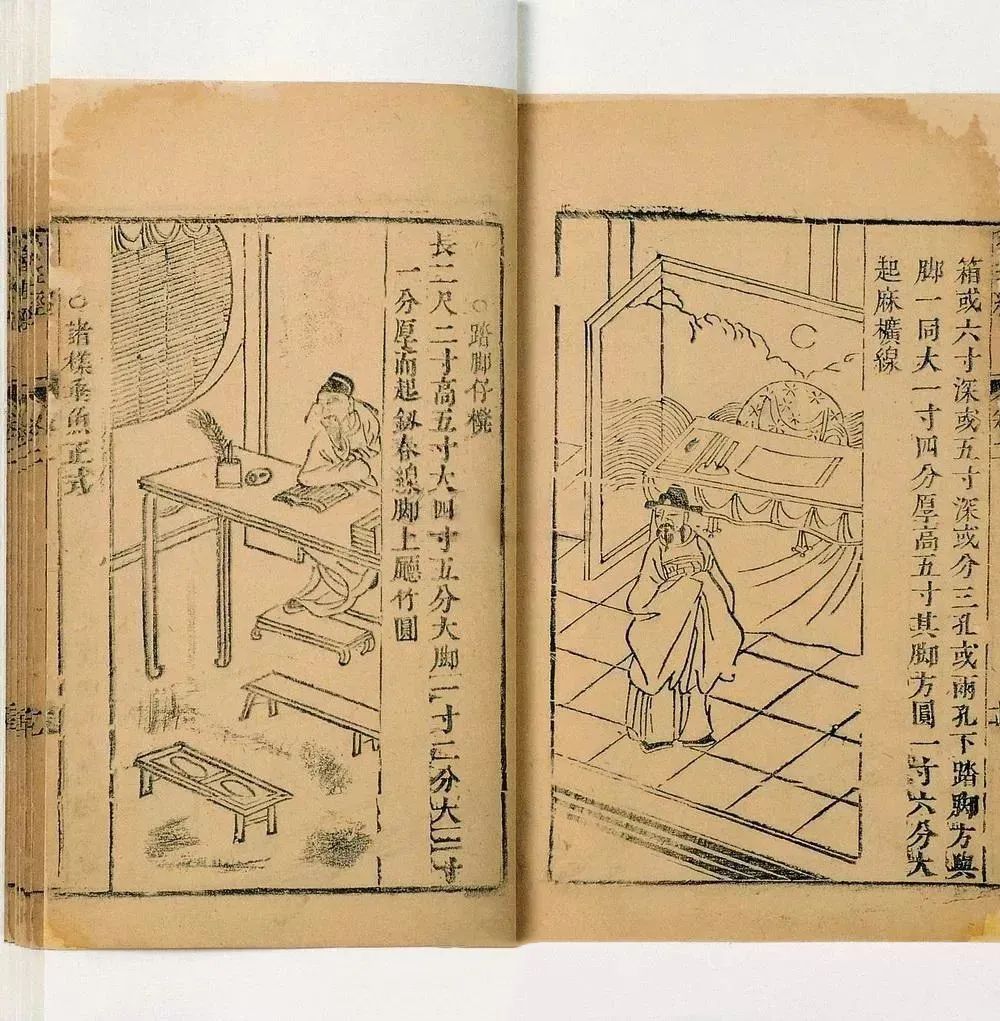 箱或六寸深或五寸深或分三孔或兩孔下踏脚方與
脚一同大一寸四分厚高五寸其脚方圓一寸六分大
起麻櫎線
○踏脚仔櫈
長二尺二寸高五寸大四寸五分大脚一寸二分大三寸
一分厚而起釼春線脚上廳竹圓
○諸樣垂魚正式